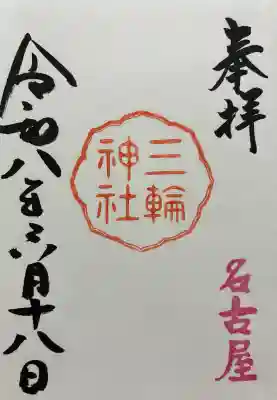 奉拝
名古屋
三輪
神社
令和八年六月十八日